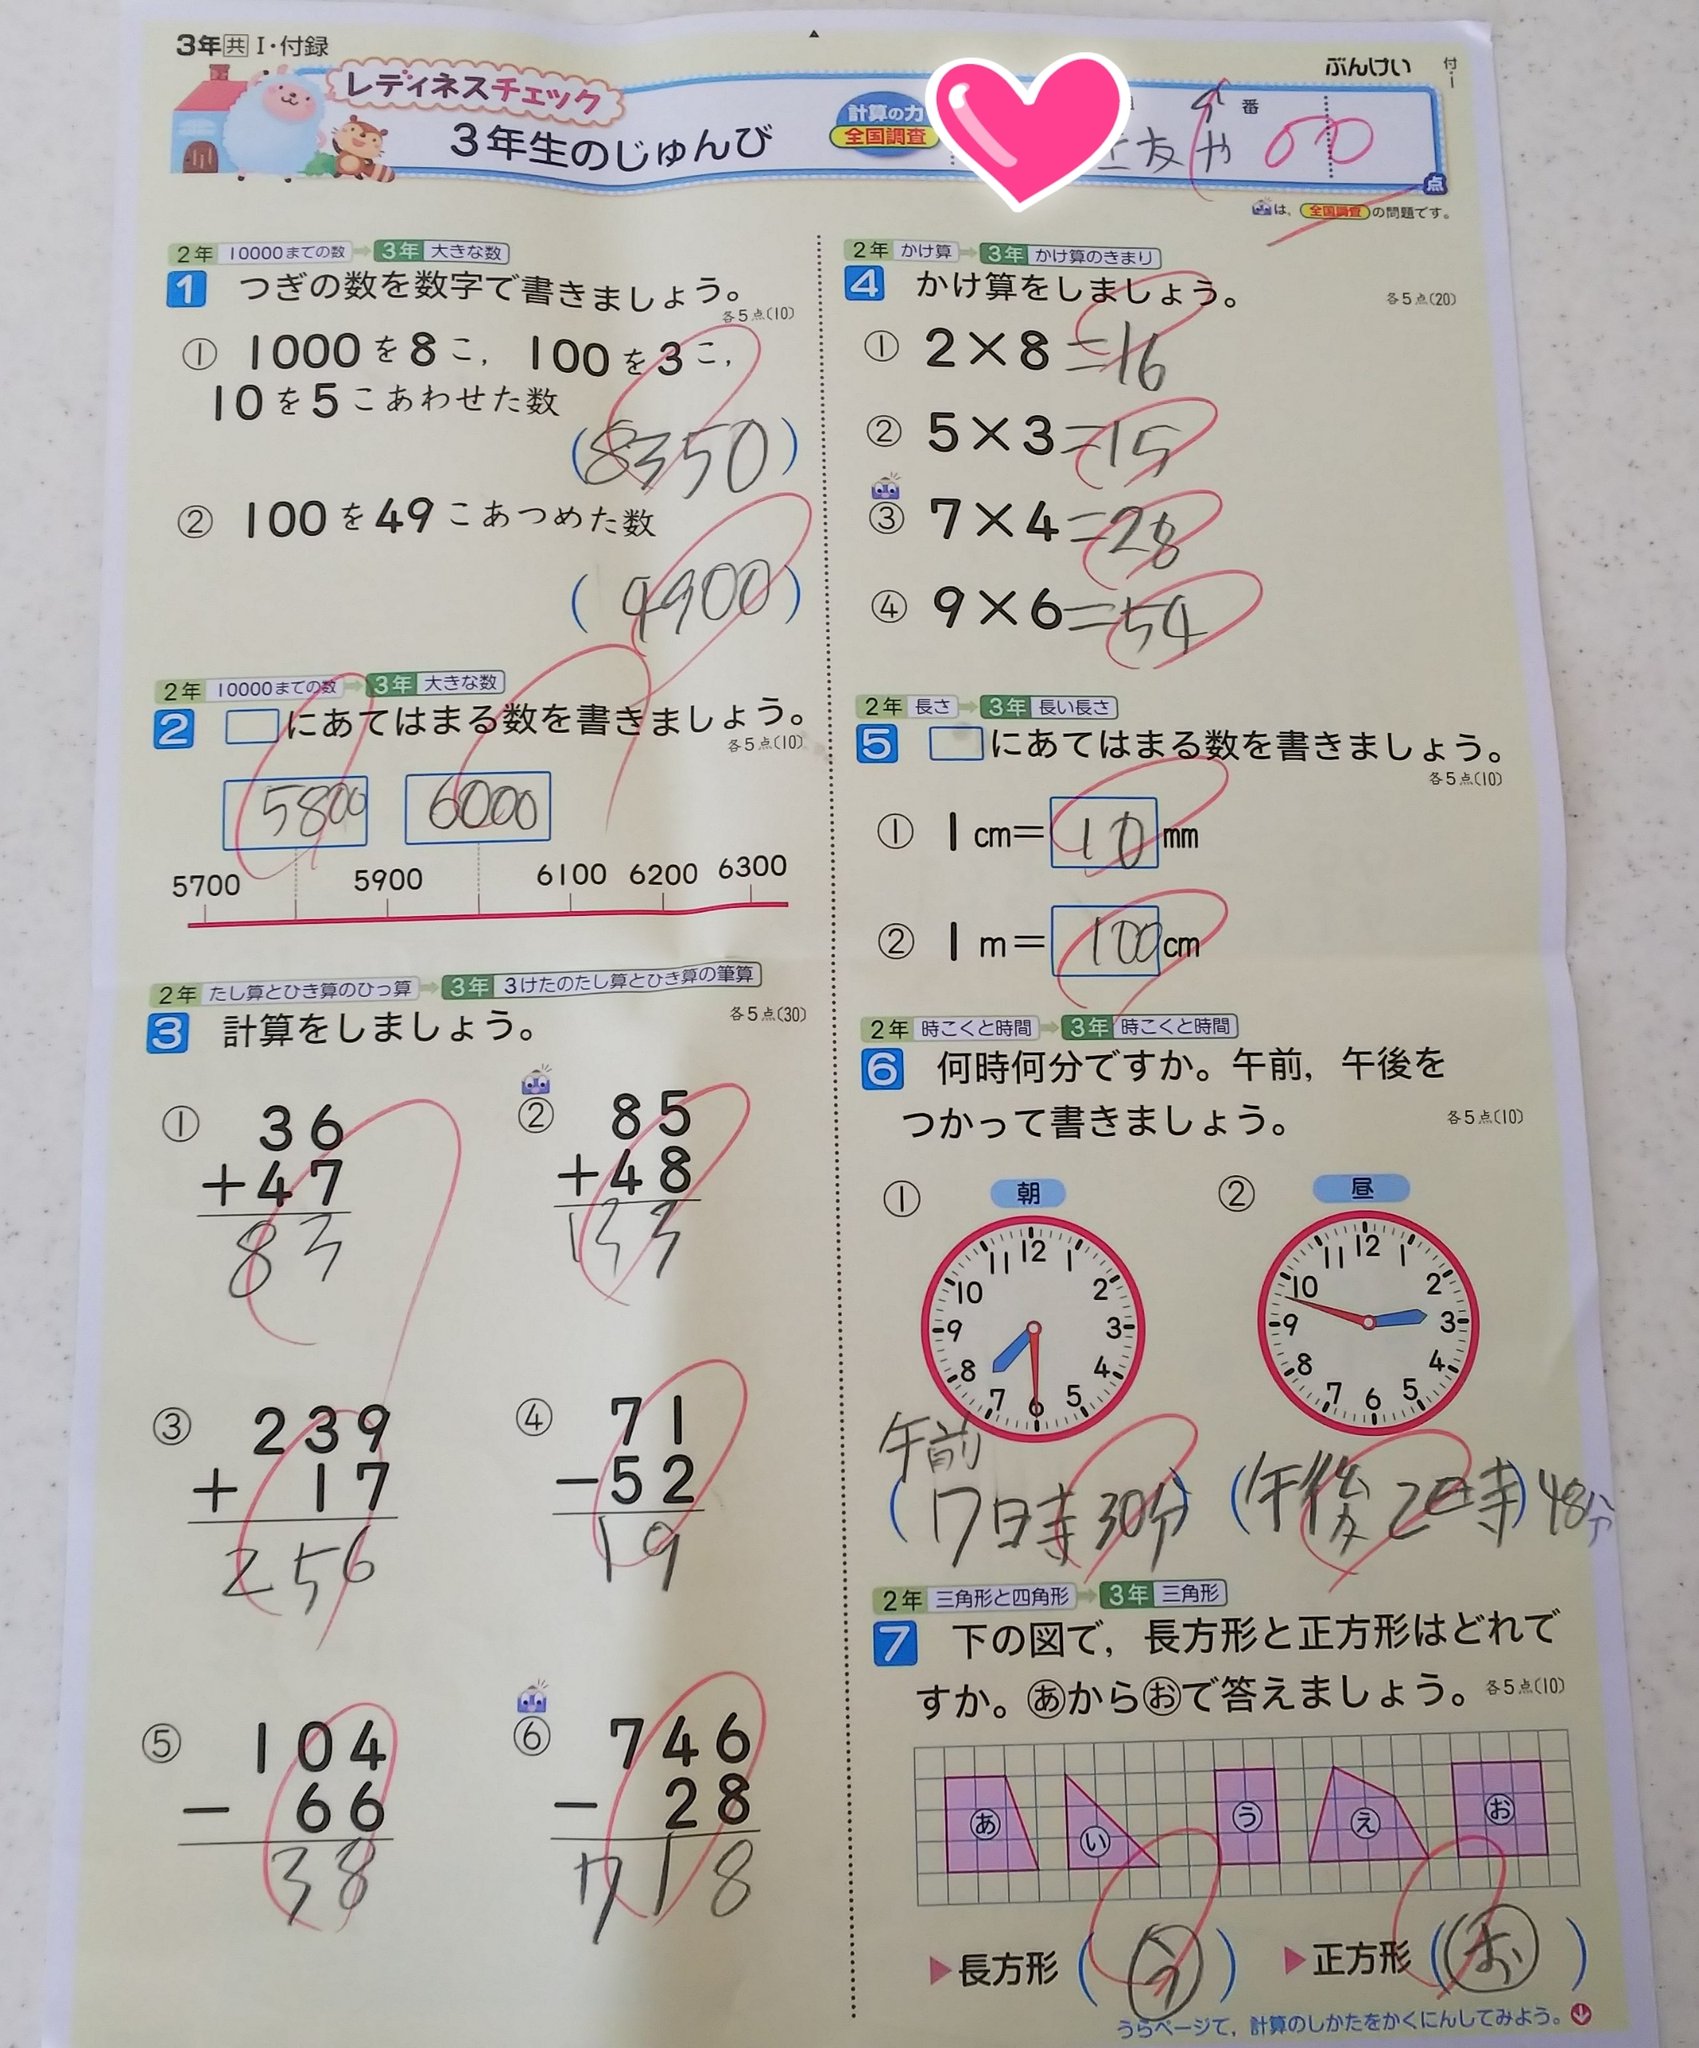 3年 共 Ⅰ・付録
ぶんけい
付-1
レディネスチェック
3年生のじゅんび
計算の力
全国調査
番
友や
100
点
は、全国調査の問題です。
2年 10000までの数 3年 大きな数
1 つぎの数を数字で書きましょう。
各5点(10)
① 1000を8こ, 100を3こ,
10を5こあわせた数
(8350)
② 100を49こあつめた数
(4900)
2年 10000までの数 3年 大きな数
2 □にあてはまる数を書きましょう。
各5点(10)
5800 6000
5700 5900 6100 6200 6300
2年 たし算とひき算のひっ算 3年 3けたのたし算とひき算の筆算
3 計算をしましょう。
各5点(30)
① 36
+47
83
② 85
+48
133
③ 239
+ 17
256
④ 71
-52
19
⑤ 104
- 66
38
⑥ 746
- 28
718
2年 かけ算 3年 かけ算のきまり
4 かけ算をしましょう。
各5点(20)
① 2×8=16
② 5×3=15
③ 7×4=28
④ 9×6=54
2年 長さ 3年 長い長さ
5 □にあてはまる数を書きましょう。
各5点(10)
① 1cm=10mm
② 1m=100cm
2年 時こくと時間 3年 時こくと時間
6 何時何分ですか。午前, 午後を
つかって書きましょう。
各5点(10)
① 朝
12 1 2 3 4 5 6 7 8 9 10 11
午前
(7時30分)
② 昼
12 1 2 3 4 5 6 7 8 9 10 11
(午後2時)48分
2年 三角形と四角形 3年 三角形
7 下の図で, 長方形と正方形はどれで
すか。あからおで答えましょう。
各5点(10)
あ い う え お
▶長方形(う) ▶正方形(お)
うらページで, 計算のしかたをかくにんしてみよう。